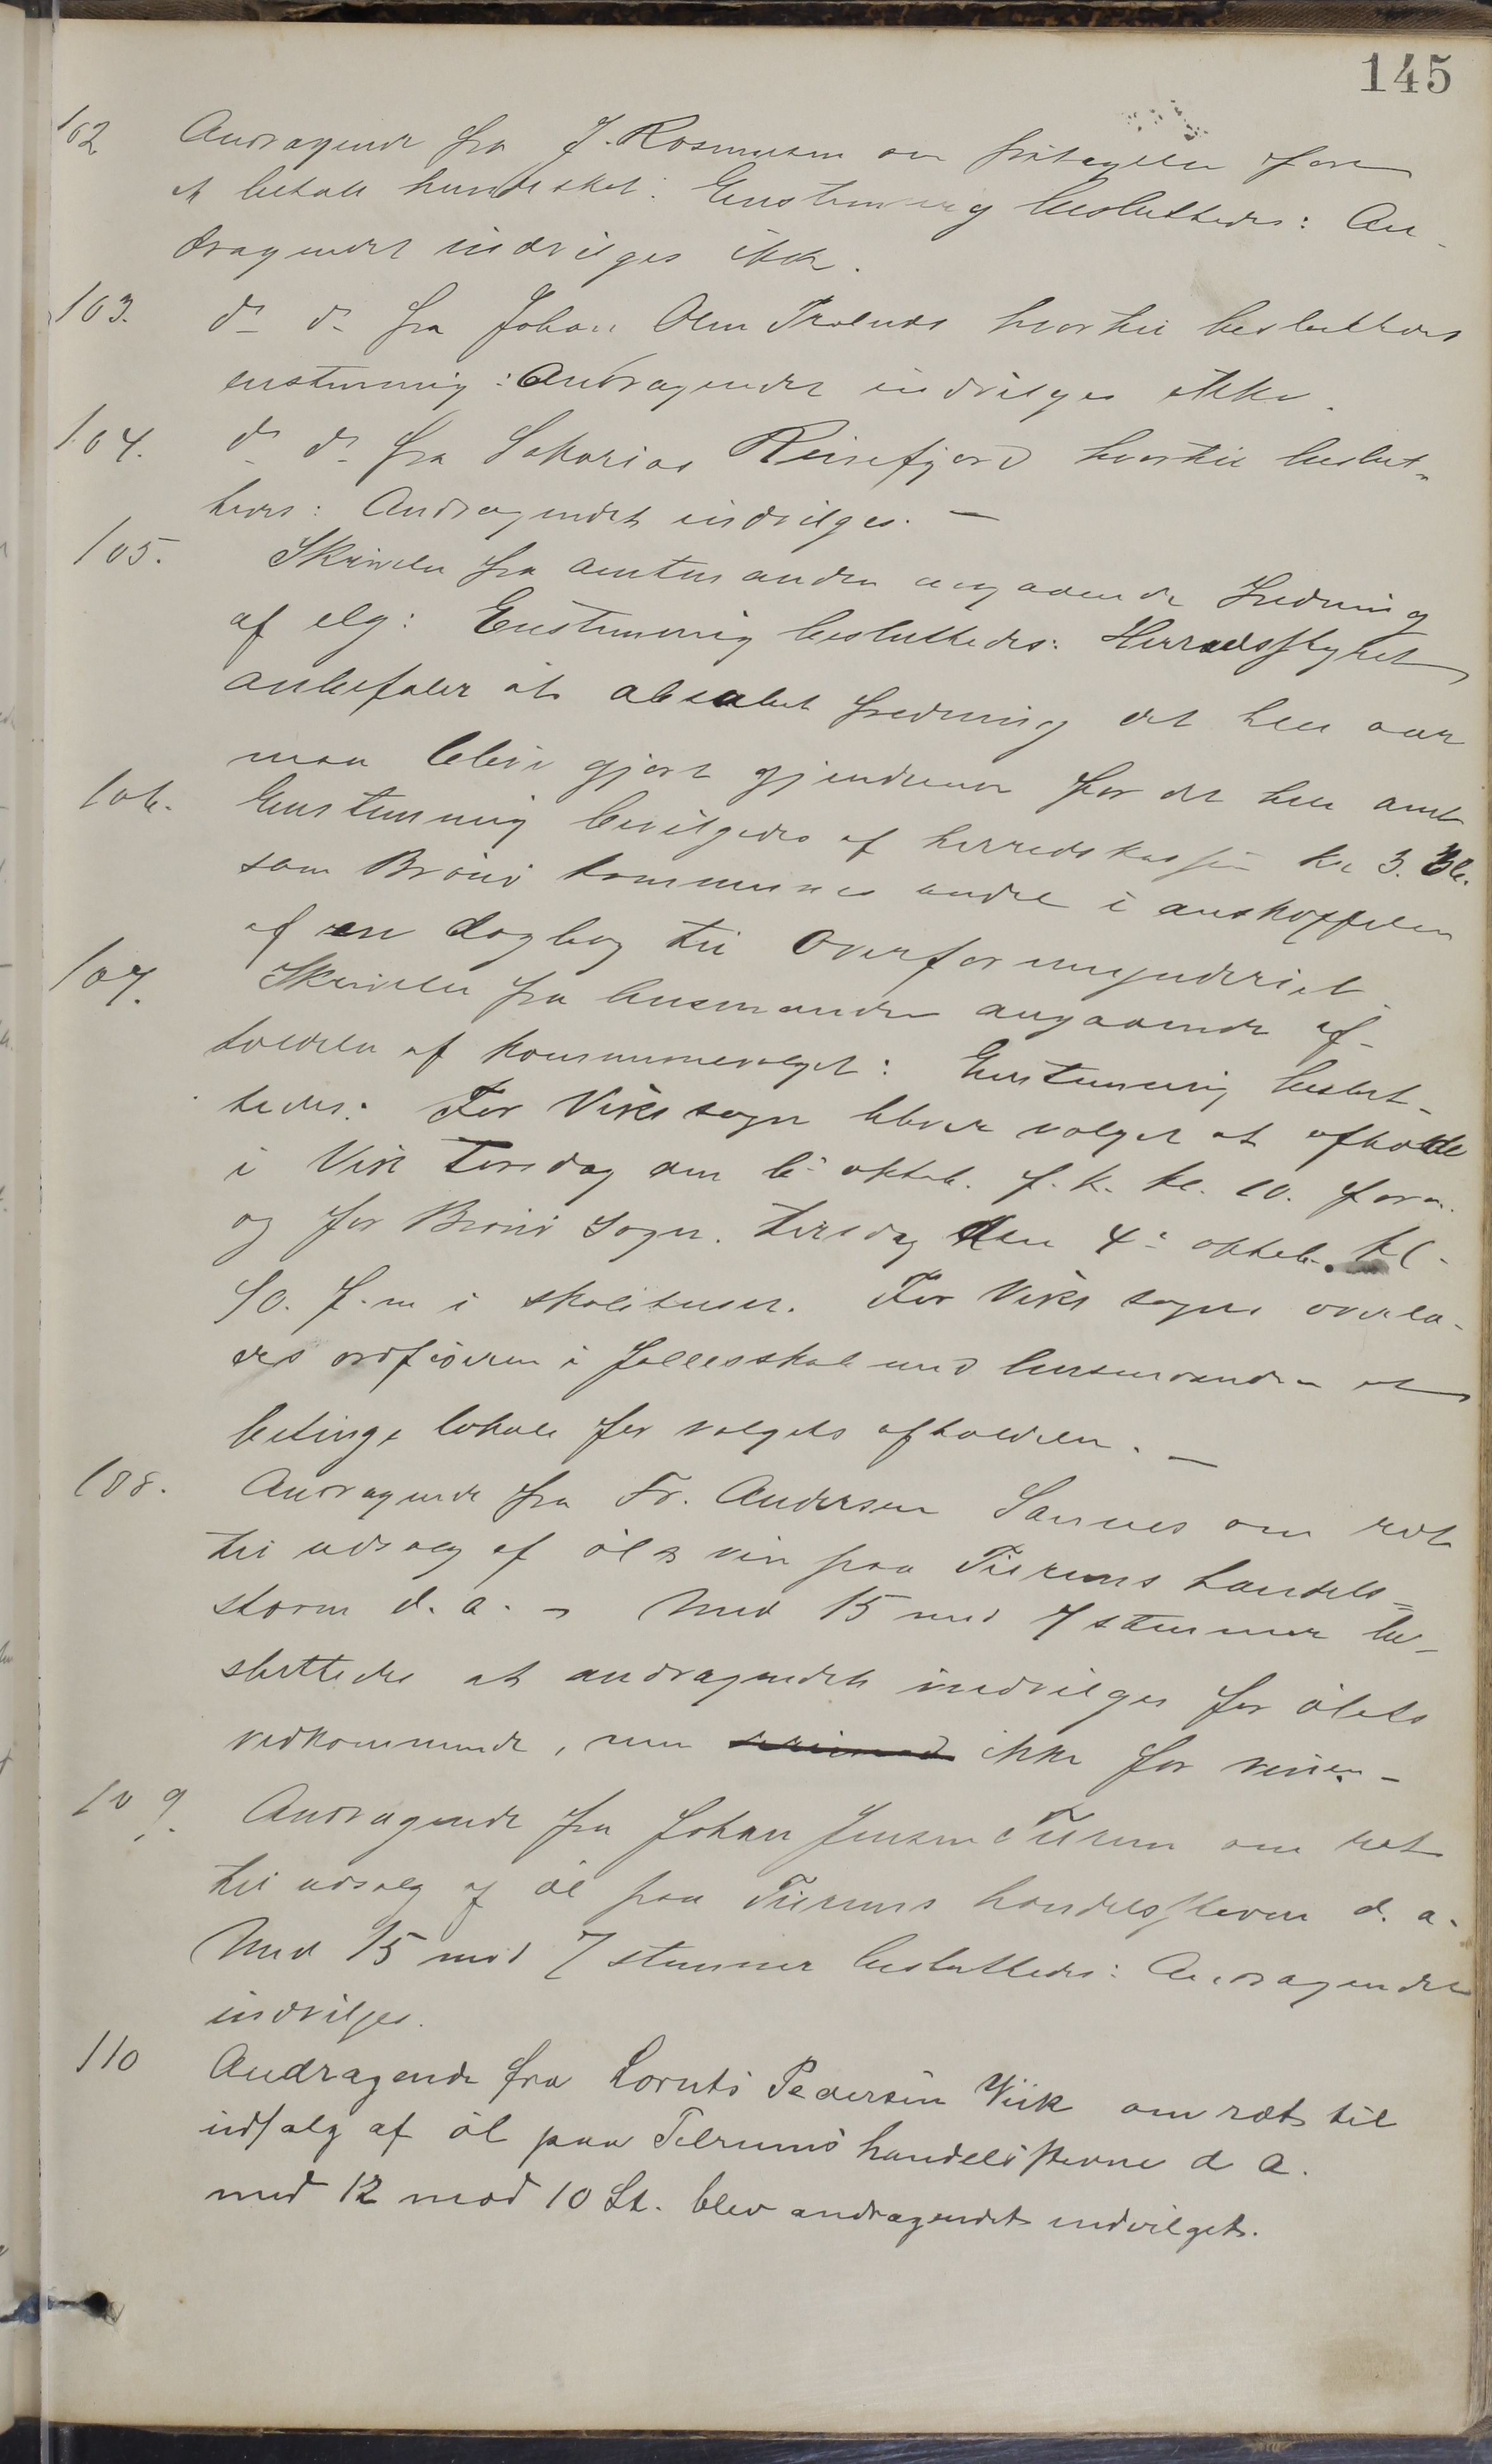 145
102 Andragende fra J. Rosmusen om fritagelse for
at betale hundeskat: Enstemmig besluttedes: An-
dragendet indvilges ikke.
103. do do fra Johan Olsen hvortil besluttedes
enstemmig: Andragendet indvilges ikke.
104. do do fra Sakarias Reinsfjord hvortil beslut-
tedes: Andragendet indvilges. —
105. Skrivelse fra amtmanden angaaende Fredning
af elg: Enstemmig besluttedes: Herredsstyret
anbefaler at absolut fredning det hele aar
maa blive gjort gjældende for det hele amt
106. Enstemmig bevilgedes af herredskassen kr 3.36.
som Brönö kommunes andel i anskaffelsen
af en dagbog til Overformynderiet.
107. Skrivelse fra lensmanden angaaende af-
holdelse af kommunevalget: Enstemmig beslut-
tedes: For Viks sogn bliver valget at afholde
i Vik Torsdag den 6te oktob. f. k. kl. 10. form.
og for Brönö Sogn. tirsdag den 4de oktob. kl.
10. f.m i skolehuset. For Viks sogn overla-
des ordföreren i fællesskab med lensmanden at
betinge lokale for valgets afholdelse. —
108. Andragende fra Fr. Andersen Sannes om ret
til udsalg af öl & vin paa Tilrems handels-
stevne d. a. - Med 15 mod 7 stemmer be-
sluttedes at andragendet indvilges for ölets
vedkommende, men ikke for vinen. -
109. Andragende fra Johan Jensen Tilrem om ret
til udsalg af öl paa Tilrems handelsstevne d. a.
Med 15 mod 7 stemmer besluttedes: Andragendet
indvilges.
110 Andragende fra Lornts Pedersen Viik om ret til
udsalg af öl paa Tilrums handelsstevne d a.
med 12 mod 10 St. blev andragendet indvilget.